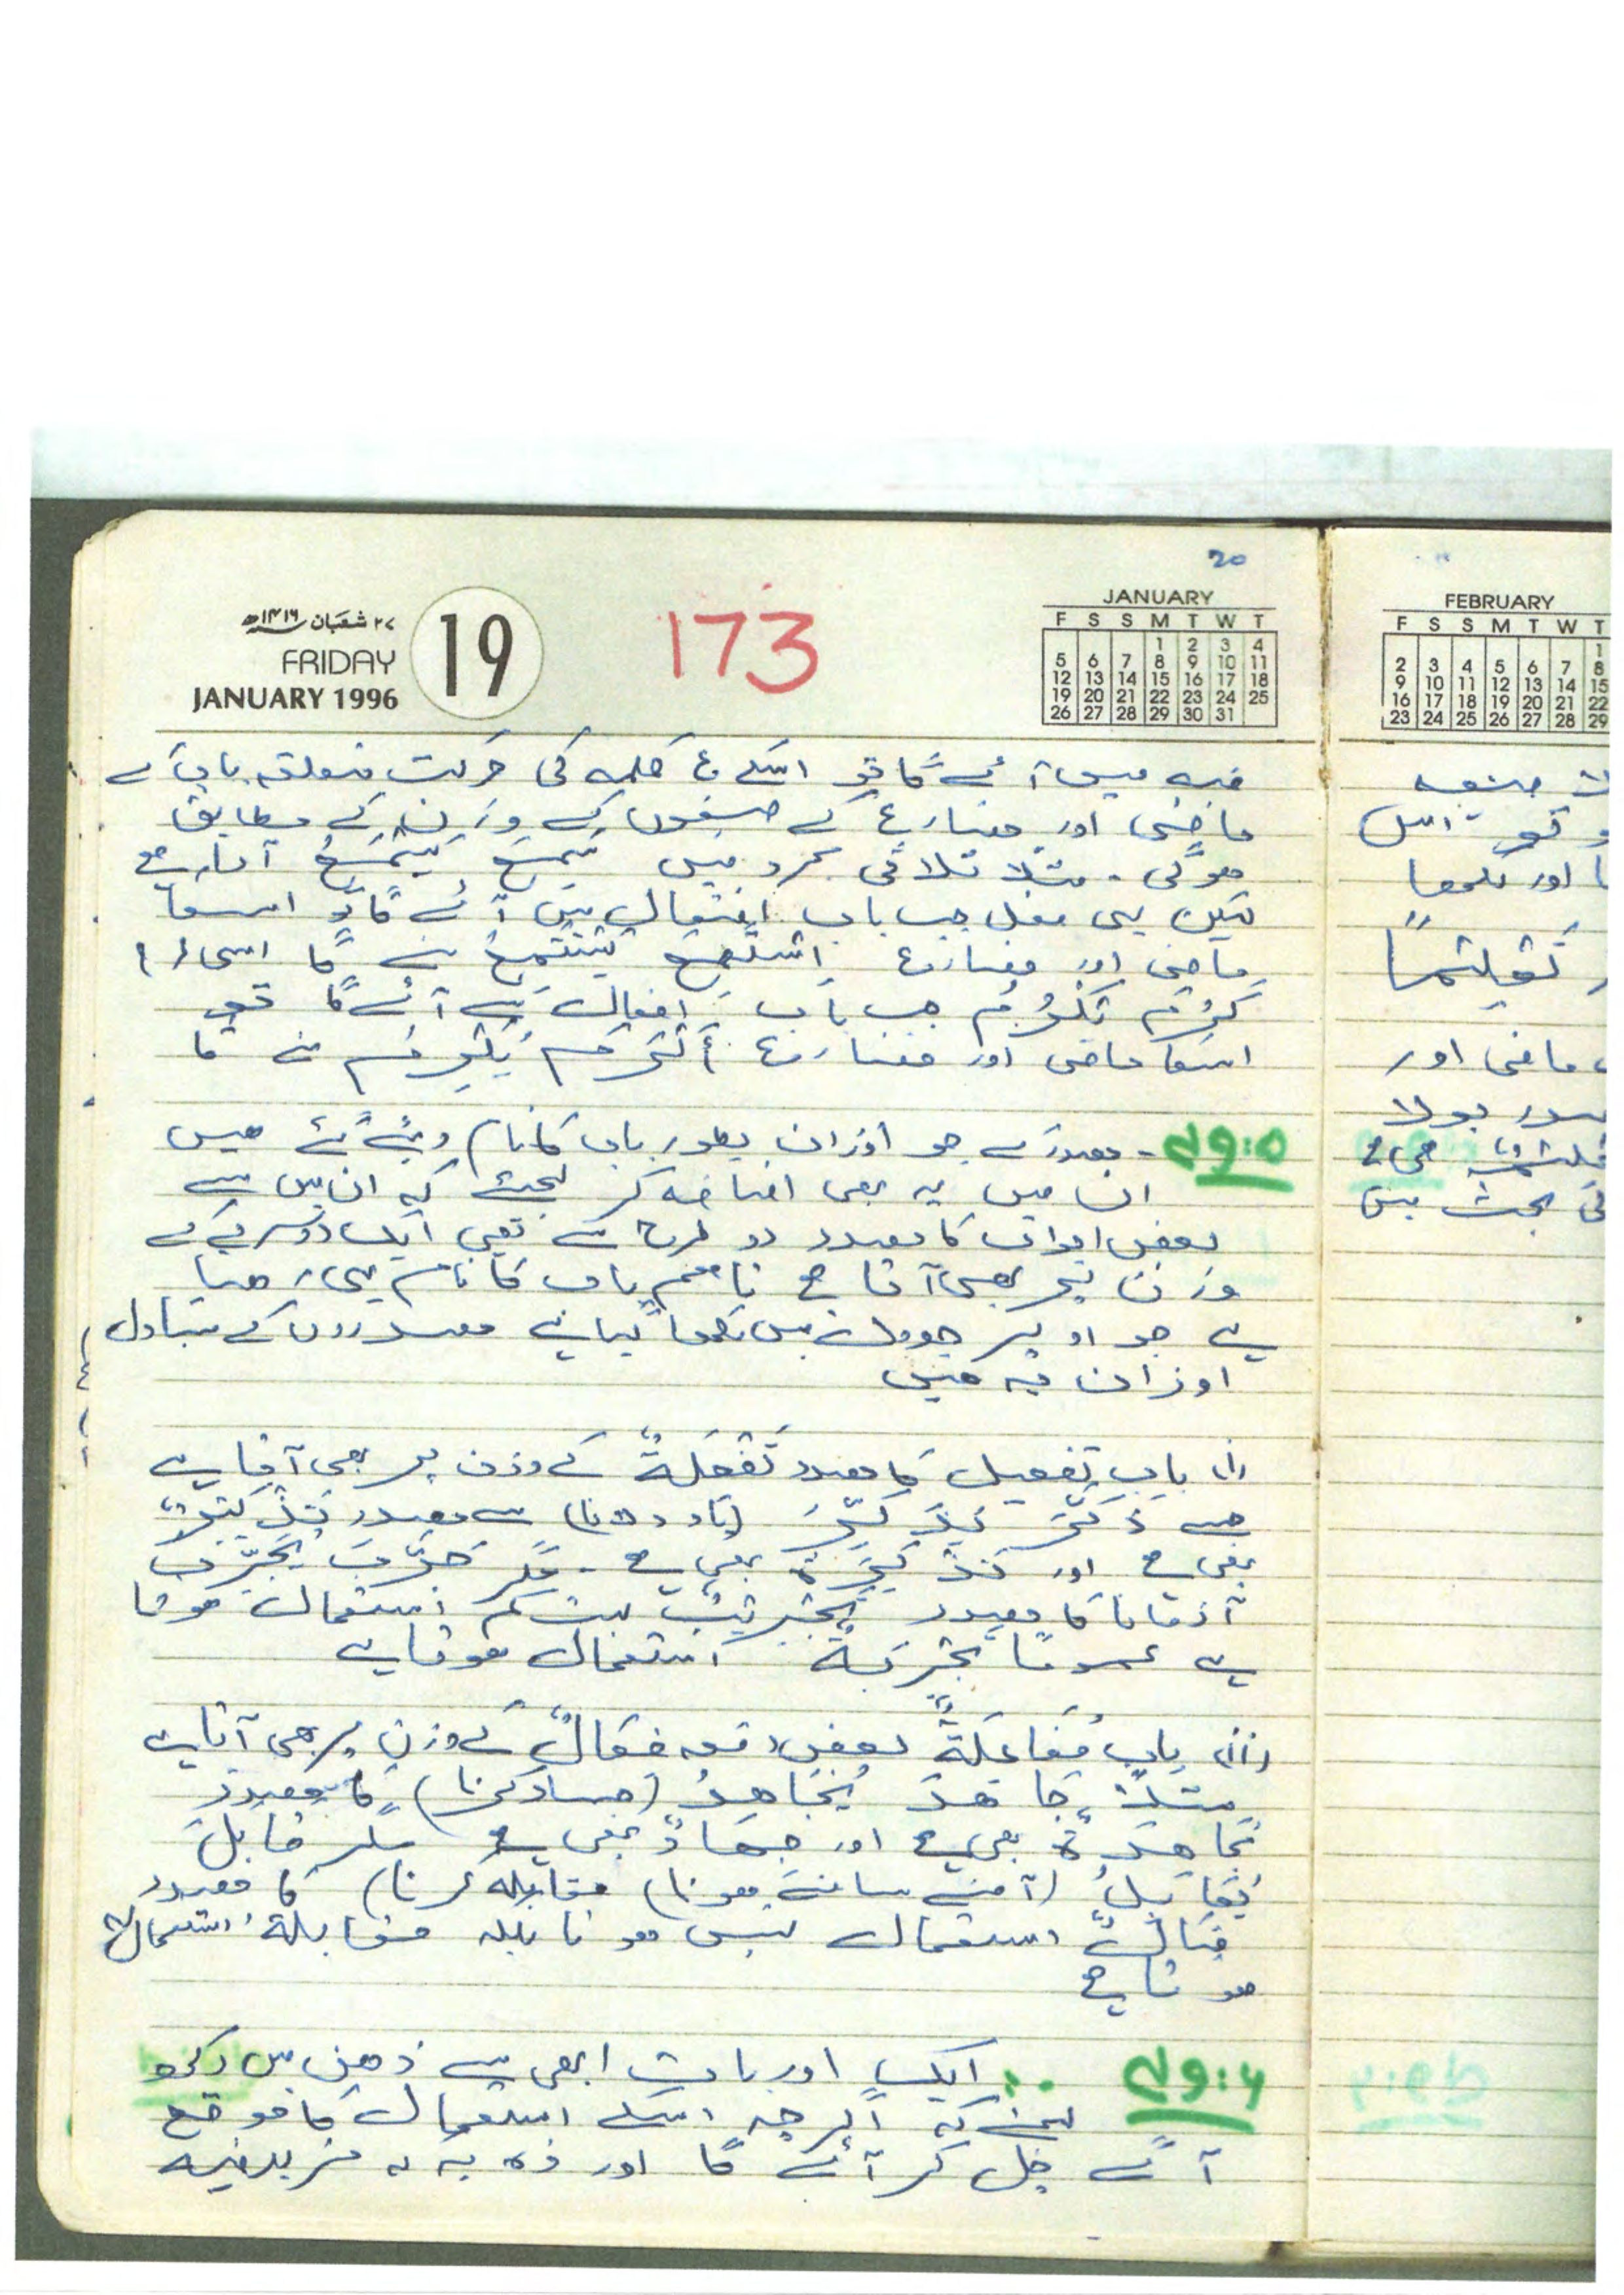 20
۲۷ شعبان ۱۴۱۶ھ
FRIDAY
JANUARY 1996
19
173
JANUARY
F S S M T W T
1 2 3 4
5 6 7 8 9 10 11
12 13 14 15 16 17 18
19 20 21 22 23 24 25
26 27 28 29 30 31
فیہ میں آئے گا تو اسکے ع کلمہ کی حرکت متعلقہ باب کے
ماضی اور مضارع کے صیغوں کے وزن کے مطابق
ہوگی۔ مثلاً ثلاثی مجرد میں سَمِعَ یَسْمَعُ آتا ہے
لیکن یہی فعل جب باب افتعال میں آئے گا تو اسکا
ماضی اور مضارع اِسْتَمَعَ یَسْتَمِعُ بنے گا اسی طرح
کَرُمَ یَکْرُمُ جب باب افعال سے آئے گا تو
اسکا ماضی اور مضارع أَکْرَمَ یُکْرِمُ بنے گا
۵:وم۴ - مصدر کے جو اوزان بطور باب کا نام دیئے گئے ہیں
ان میں یہ بھی اضافہ کر لیجئے کہ ان میں سے
بعض ابواب کا مصدر دو طرح سے یعنی ایک دوسرے کے
وزن پر بھی آتا ہے تاہم باب کا نام یہی رہتا
ہے جو اوپر جدول میں لکھا گیا ہے مصدروں کے متبادل
اوزان یہ ہیں
(i) باب تفعیل کا مصدر تَفْعِلَةٌ کے وزن پر بھی آتا ہے
جیسے ذَکَّرَ یُذَکِّرُ (یاد دلانا) سے مصدر تَذْکِیْرٌ
بھی ہے اور تَذْکِرَةٌ بھی ہے۔ مگر جَرَّبَ یُجَرِّبُ
آزمانا کا مصدر تَجْرِیْبٌ بہت کم استعمال ہوتا
ہے عموماً تَجْرِبَةٌ استعمال ہوتا ہے
(ii) باب مُفَاعَلَةٌ بعض دفعہ فِعَالٌ کے وزن پر بھی آتا ہے
مثلاً جَاهَدَ یُجَاهِدُ (جہاد کرنا) کا مصدر
مُجَاهَدَةٌ بھی ہے اور جِهَادٌ بھی ہے مگر قَابَلَ
یُقَابِلُ (آمنے سامنے ہونا) مقابلہ کرنا) کا مصدر
قِبَالٌ استعمال نہیں ہوتا بلکہ مُقَابَلَةٌ استعمال
ہوتا ہے
۶:وم۴ ایک اور بات ابھی سے ذہن میں رکھ
لیجئے کہ اگرچہ اسکے استعمال کا موقع
آگے چل کر آئے گا اور وہ یہ کہ مزید فیہ
FEBRUARY
F S S M T W T
1
2 3 4 5 6 7 8
9 10 11 12 13 14 15
16 17 18 19 20 21 22
23 24 25 26 27 28 29
صیغہ
تو اس
اور لکھا
ماضی اور
بولا
بحث میں